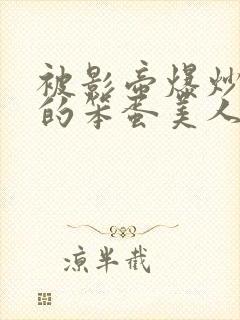 被影帝爆炒
的笨蛋美人
凉半截